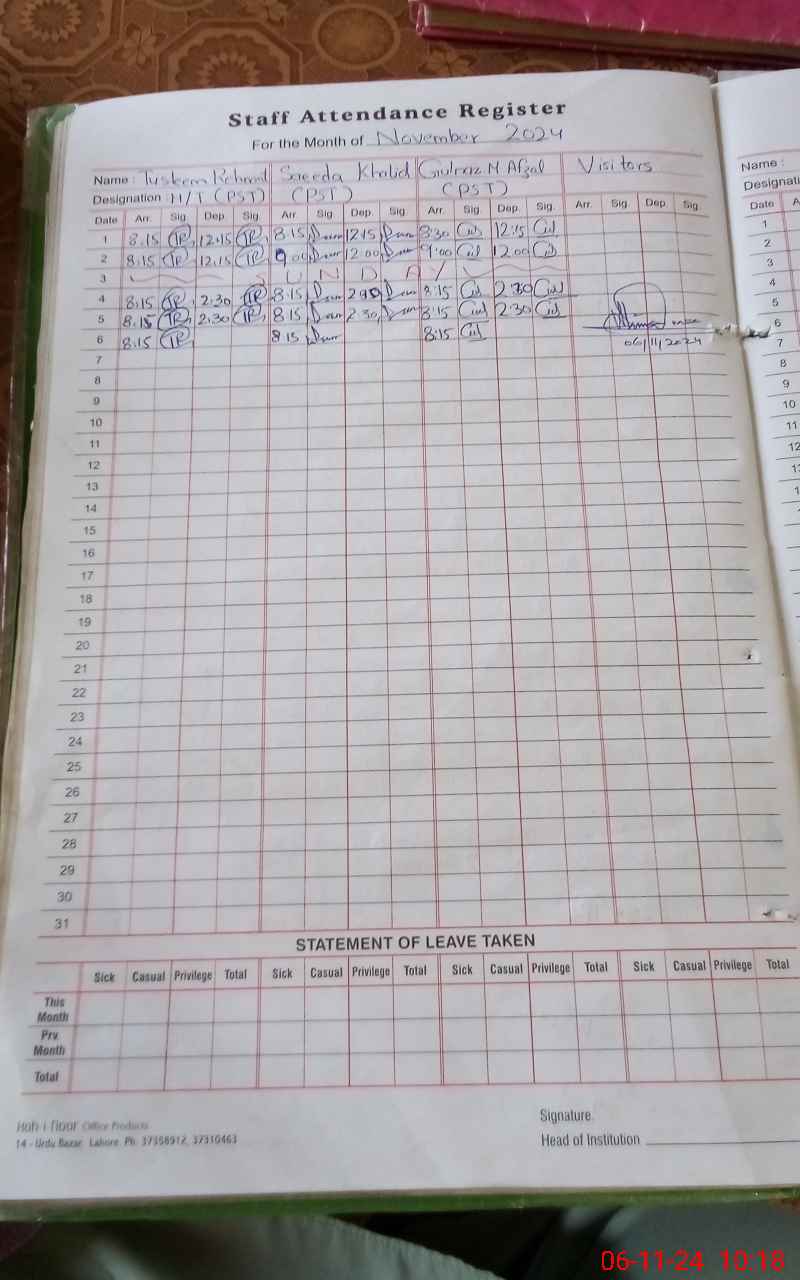 Staff Attendance Register
For the Month of November 2024
Name: Saeeda Khalid Gulnaz M Afzal Visitors Name:
Designation H/T (PST) (PST) (PST) Designati
Date Arr. Sig. Dep. Sig. Arr. Sig. Dep. Sig. Arr. Sig. Dep. Sig. Arr. Sig. Dep. Sig. Date A
1 8.15 TR 12.15 TR 8.15 12.15 8.30 12.15 1
2 8.15 TR 12.15 TR 9.00 12.00 9.00 12.00 2
3 SUNDAY 3
4 8.15 TR 2.30 TR 8.15 8.15 2.30 4
5 8.15 TR 2.30 TR 8.15 2.30 8.15 2.30 5
6 8.15 TR 8.15 8.15 6
06/11/2024
7 7
8 8
9 9
10 10
11 11
12 12
13 13
14
15
16
17
18
19
20
21
22
23
24
25
26
27
28
29
30
31
STATEMENT OF LEAVE TAKEN
Sick Casual Privilege Total Sick Casual Privilege Total Sick Casual Privilege Total Sick Casual Privilege Total
This Month
Prv. Month
Total
Office Products
14 - Urdu Bazar Lahore. Ph: 37358912, 37310463
Signature.
Head of Institution
06-11-24 10:18